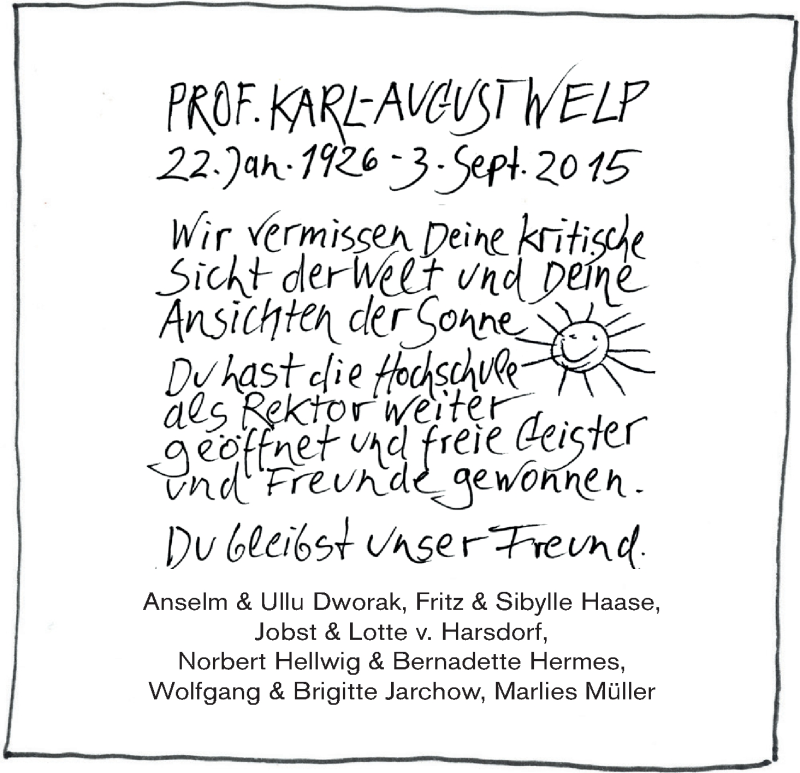 PROF. KARL-AUGUST WELP
22. Jan. 1926 - 3. Sept. 2015
Wir vermissen Deine kritische
Sicht der Welt und Deine
Ansichten der Sonne
Du hast die Hochschule
als Rektor weiter
geöffnet und freie Geister
und Freunde gewonnen.
Du bleibst unser Freund.
Anselm & Ullu Dworak, Fritz & Sibylle Haase,
Jobst & Lotte v. Harsdorf,
Norbert Hellwig & Bernadette Hermes,
Wolfgang & Brigitte Jarchow, Marlies Müller